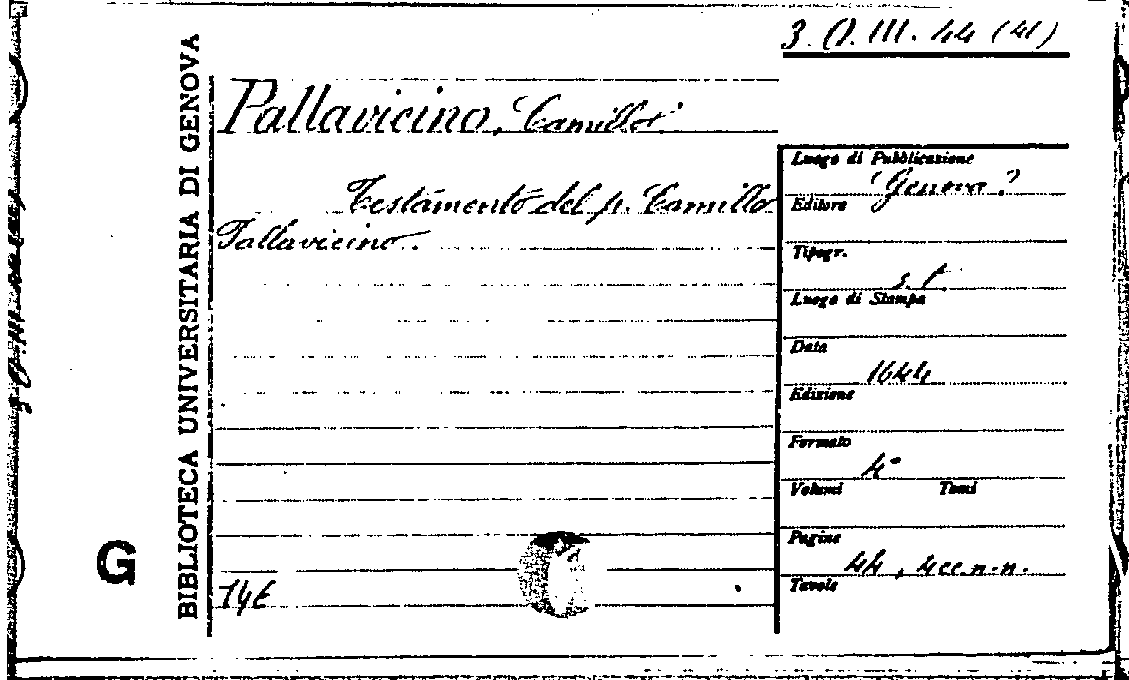 3. O. III. 44 (41)
BIBLIOTECA UNIVERSITARIA DI GENOVA
G
Pallavicino, Camillo.
Testamento del p. Camillo
Pallavicino.
Luogo di Pubblicazione
(Genova?
Editore
Tipogr.
s. t.
Luogo di Stampa
Data
1644
Edizione
Formato
4°
Volumi Tomi
Pagine
44, 4 cc. n. n.
Tavole